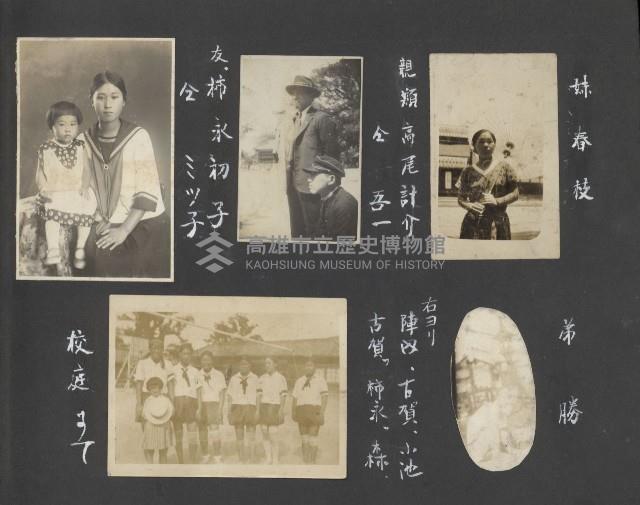 妹 春枝
親類 高尾計介
仝 吾一
友、柿永初子
仝 ミツ子
弟 勝
右ヨリ
陣内、古賀、小池
古賀、柿永、森、
校庭ニテ
高雄市立歷史博物館
KAOHSIUNG MUSEUM OF HISTORY